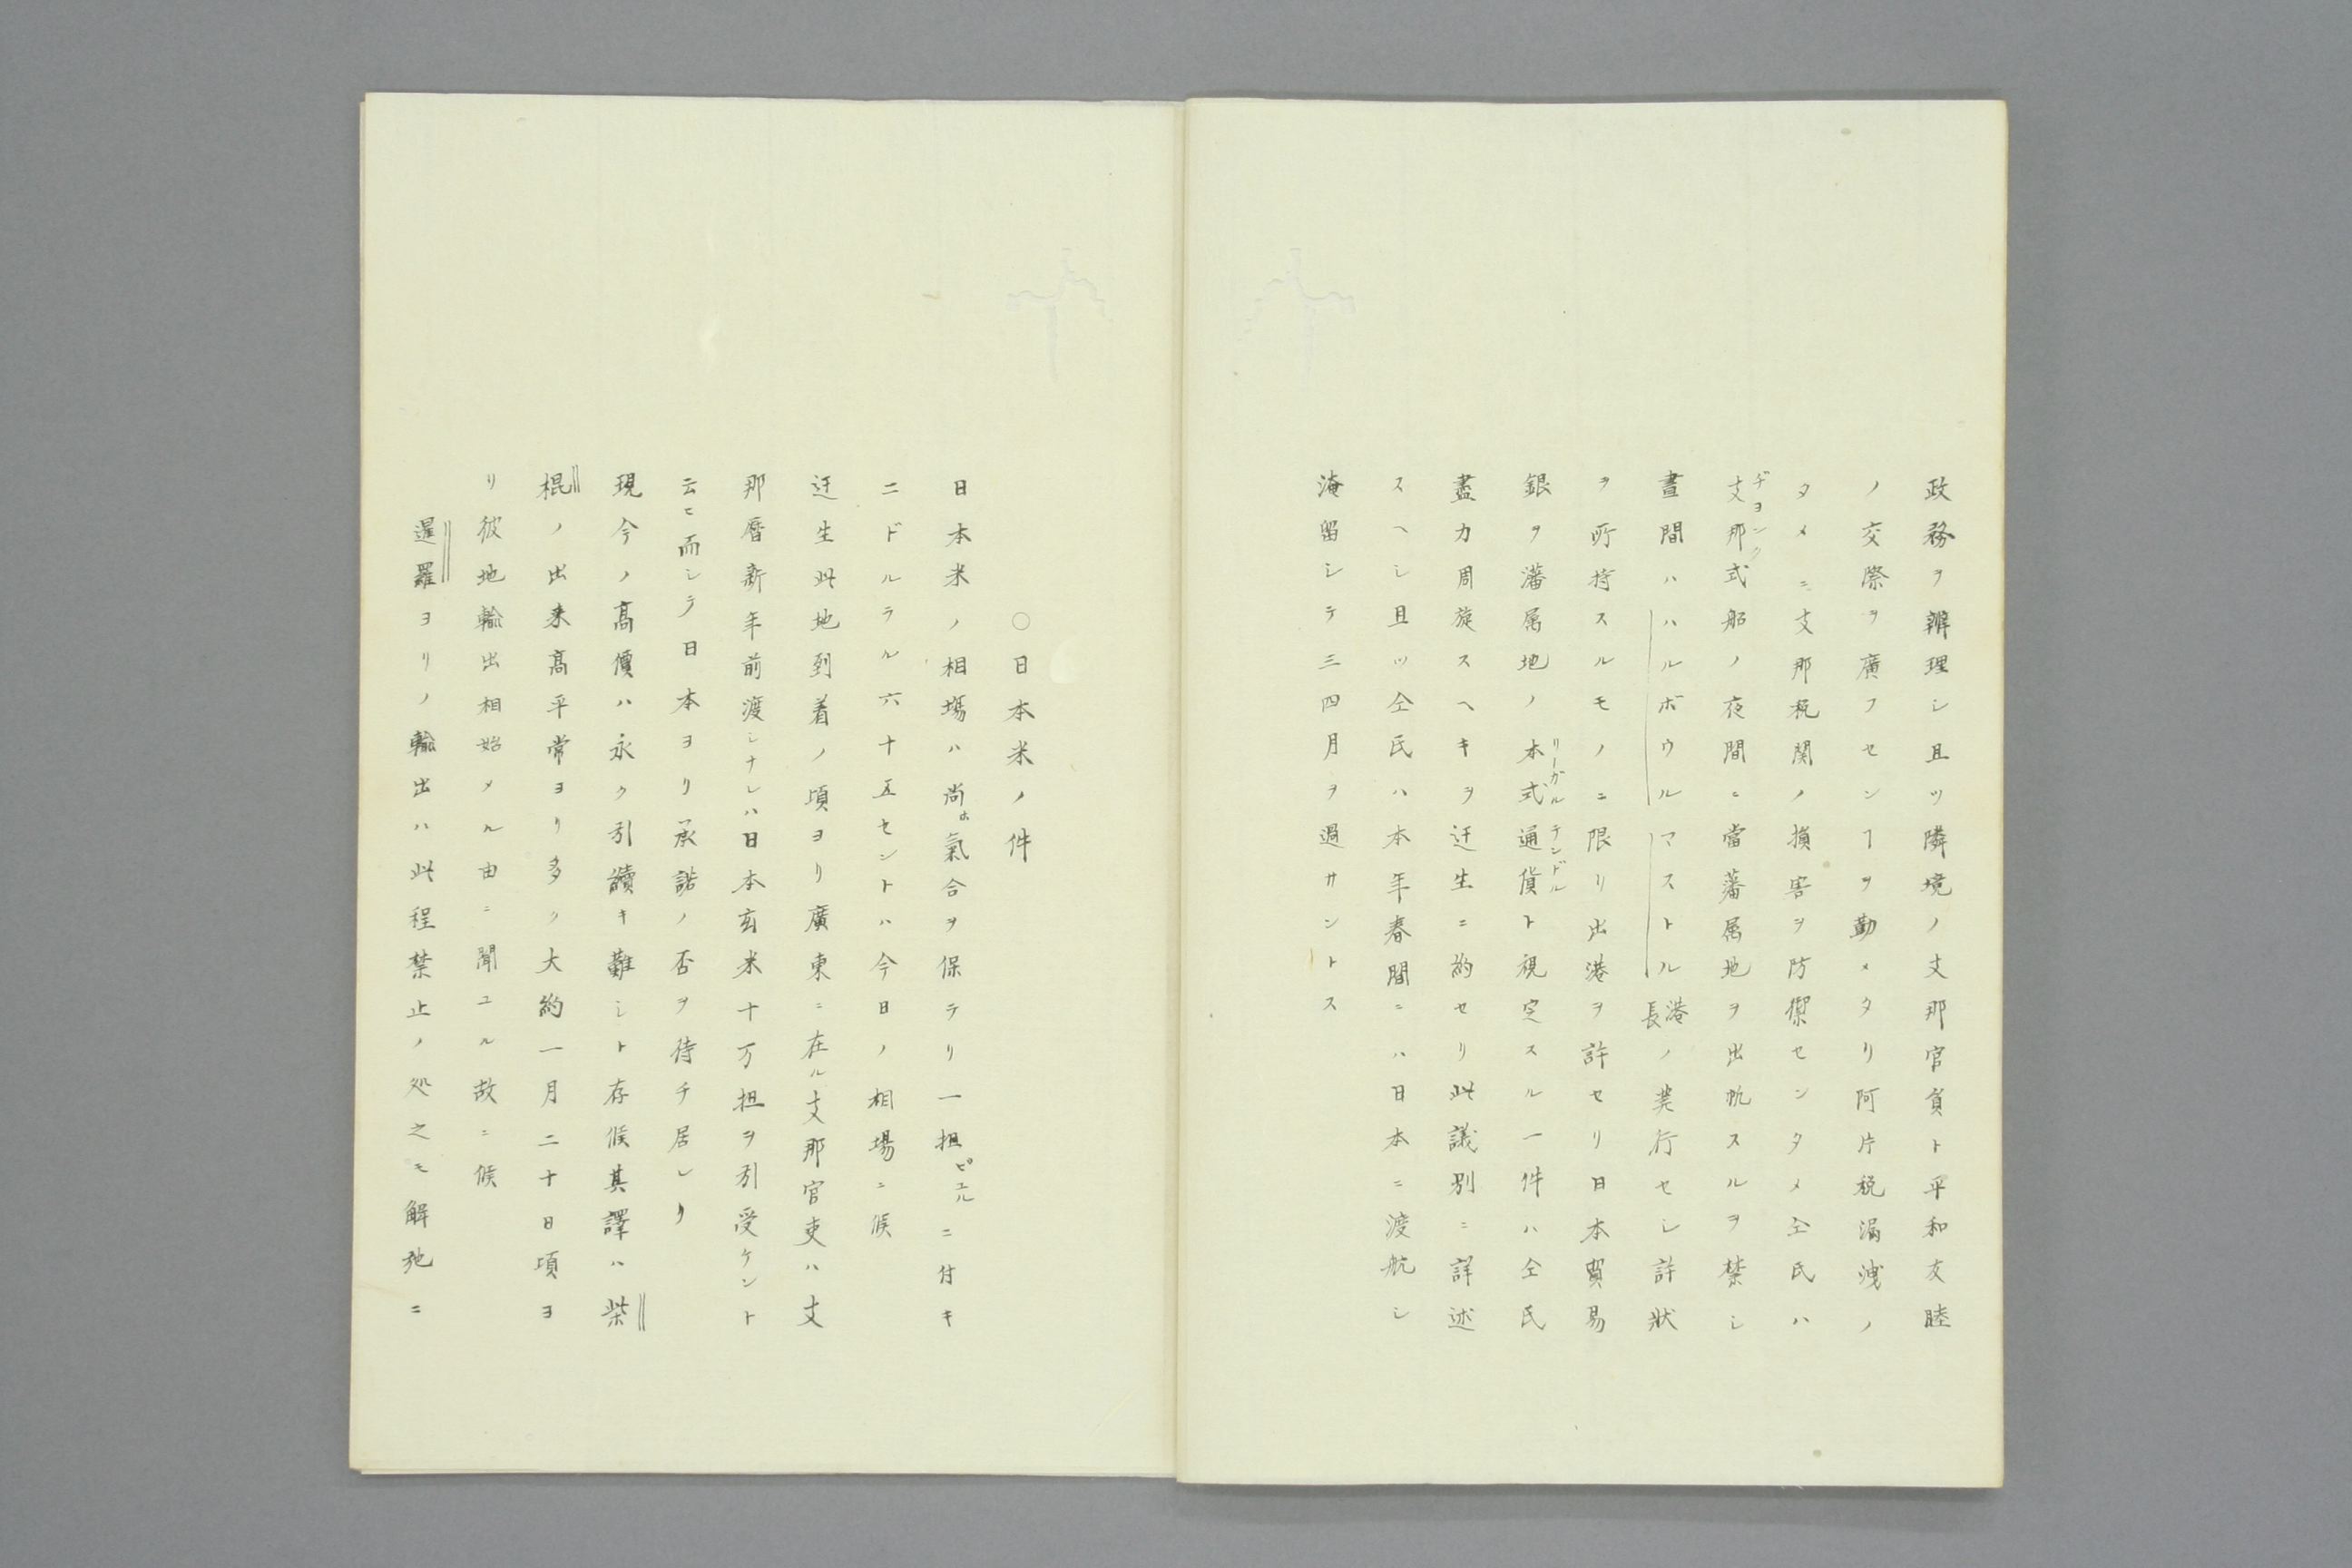 政務ヲ辨理シ且ツ隣境ノ支那官負ト平和友睦
ノ交際ヲ廣フセンヿヲ勤メタリ阿片税漏洩ノ
タメニ支那税関ノ損害ヲ防禦センタメ仝民ハ
支那式船ノ夜間ニ當藩属地ヲ出帆スルヲ禁シ
ヂヨンク
晝間ハハルボウルマストル港長ノ発行セシ許状
ヲ所持スルモノニ限リ出港ヲ許セリ日本貿易
銀ヲ藩属地ノ本式通貨ト視定スル一件ハ仝氏
リーガルテンドル
盡力周旋スヘキヲ迂生ニ約セリ此議別ニ詳述
スヘシ且ツ仝氏ハ本年春間ニハ日本ニ渡航シ
淹留シテ三四月ヲ過サントス
○日本米ノ件
日本米ノ相塲ハ尚ホ氣合ヲ保テリ一担ピユルニ付キ
二ドルラル六十五セントハ今日ノ相場ニ候
迂生此地到着ノ頃ヨリ廣東ニ在ル支那官吏ハ支
那暦新年前渡シナレハ日本玄米十万担ヲ引受ケント
云ヒ而シテ日本ヨリ承諾ノ否ヲ待チ居レリ
現今ノ髙價ハ永ク引續キ難シト存候其譯ハ柴
棍ノ出来髙平常ヨリ多ク大約一月二十日頃ヨ
リ彼地輸出相始メル由ニ聞ユル故ニ候
暹羅ヨリノ輸出ハ此程禁止ノ処之モ解弛ニ